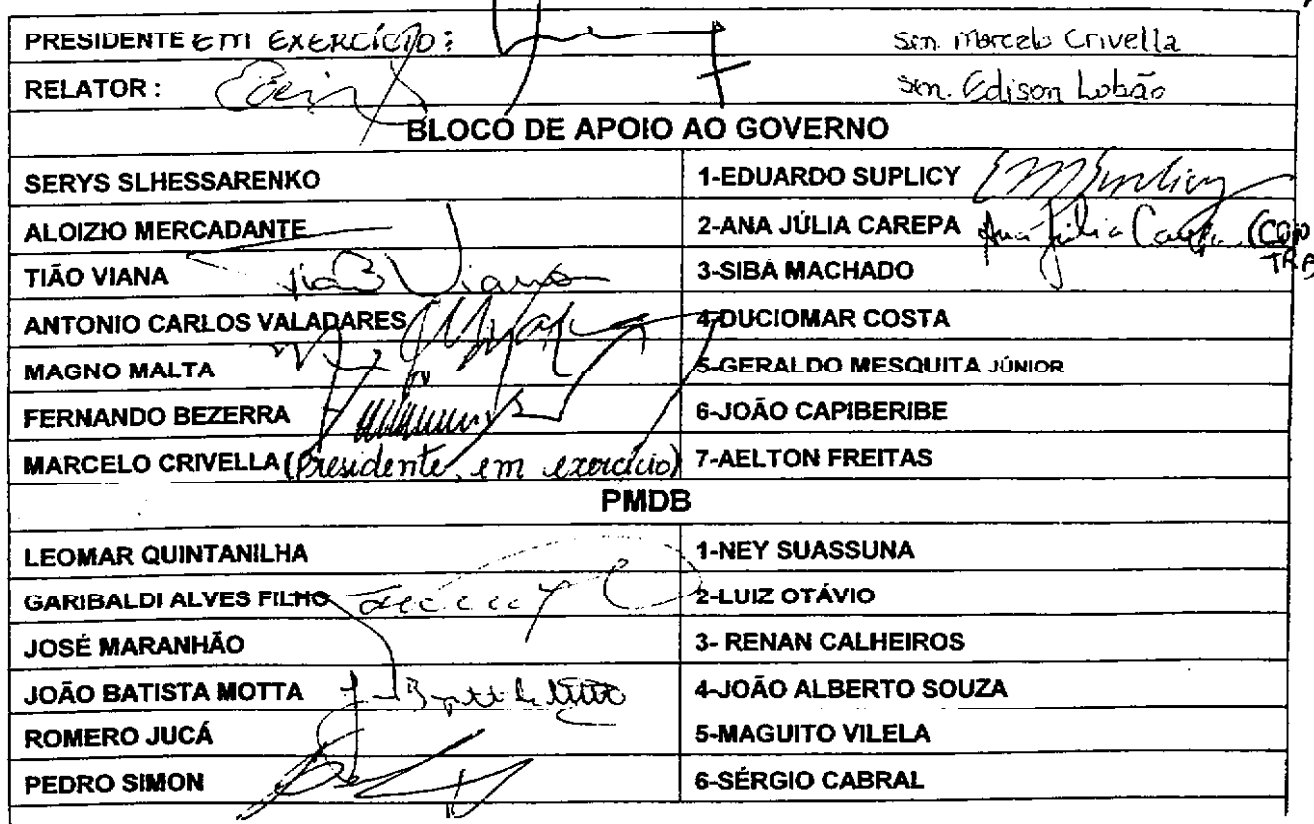 PRESIDENTE EM EXERCÍCIO: Sen. Marcelo Crivella
RELATOR: Sen. Edison Lobão
BLOCO DE APOIO AO GOVERNO
SERYS SLHESSARENKO 1-EDUARDO SUPLICY
ALOIZIO MERCADANTE 2-ANA JÚLIA CAREPA Ana Júlia Carepa
TIÃO VIANA Tião Viana 3-SIBÁ MACHADO
ANTONIO CARLOS VALADARES 4-DUCIOMAR COSTA
MAGNO MALTA 5-GERALDO MESQUITA JÚNIOR
FERNANDO BEZERRA 6-JOÃO CAPIBERIBE
MARCELO CRIVELLA (Presidente, em exercício) 7-AELTON FREITAS
PMDB
LEOMAR QUINTANILHA 1-NEY SUASSUNA
GARIBALDI ALVES FILHO 2-LUIZ OTÁVIO
JOSÉ MARANHÃO 3- RENAN CALHEIROS
JOÃO BATISTA MOTTA 4-JOÃO ALBERTO SOUZA
ROMERO JUCÁ 5-MAGUITO VILELA
PEDRO SIMON 6-SÉRGIO CABRAL